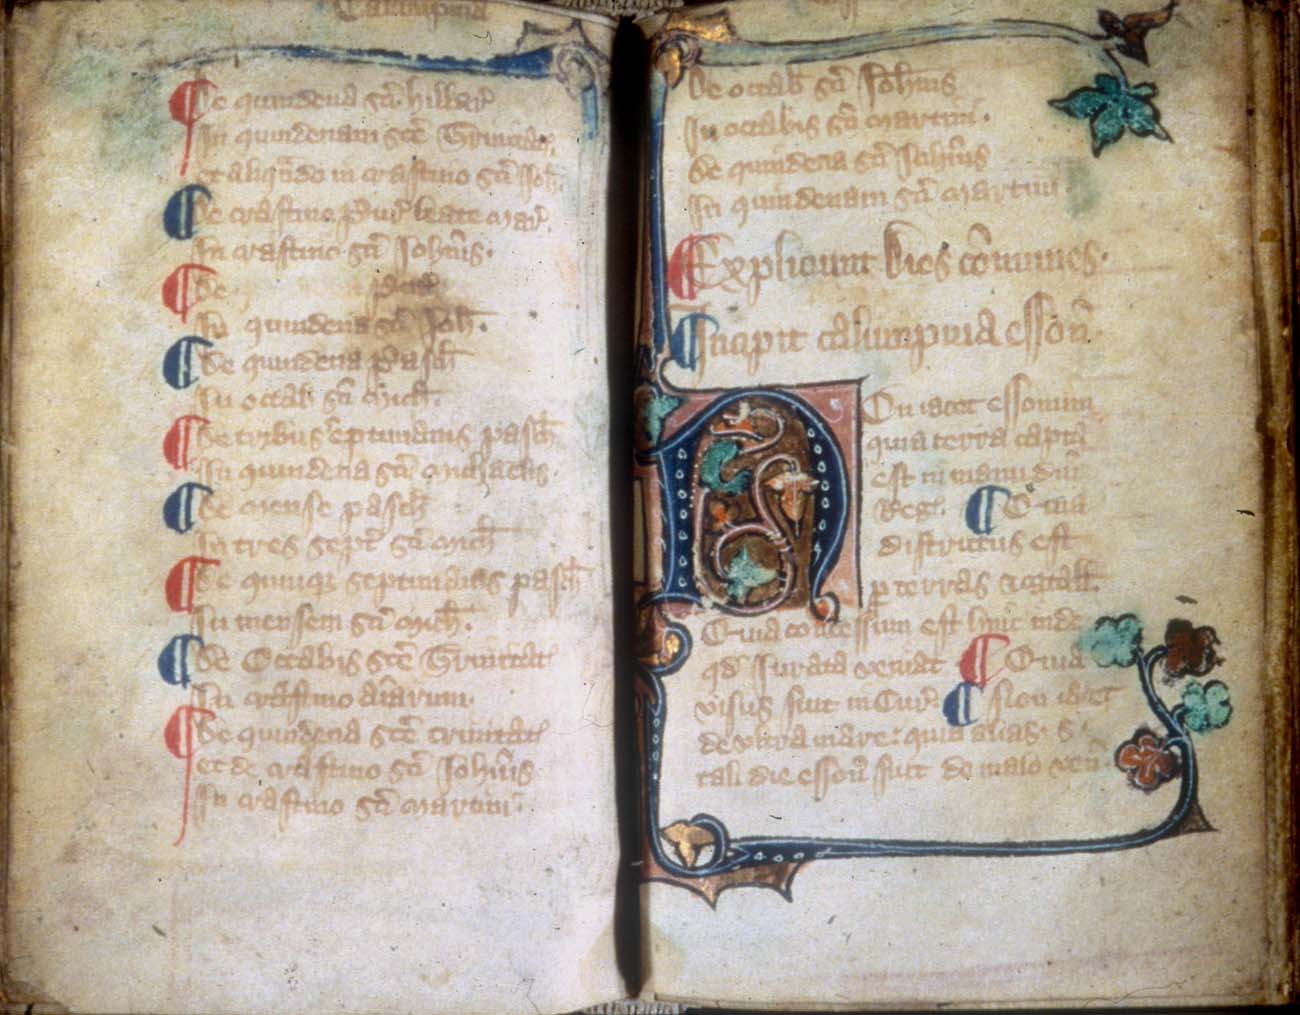 Calumpnia
De quindena sci hillar
In quindenam sce Trinitat
et aliqndo in crastino sci Joh
De crastino Pur beate Mar
In crastino sci Johnis
De
In quindena sci Joh
De quindena Pasch
In octab sci Mich
De tribus septimanis pasch
In quindena sci Michaelis
De mense pasch
In tres sept sci Mich
De quinq septimanis pasch
In mensem sci Mich
De Octabis sce Trinitat
In crastino aiarum
De quindena sce trinitat
et de crastino sci Johnis
In crastino sci Martini
De octab sci Johnis
In octabis sci Martini
De quindena sci Johnis
In quindenam sci Martini
Expliciunt Dies comunes
Incipit calumpnia esson
Non iacet essonium
quia terra capta
est in manu dni
Reg. Quia
districtus est
p terras & catall
Quia concessum est hinc inde
qd Jurata veniat Quia
visus fuit in Cur. Non iacet
de ultra mare: quia alias s
tali die esson fuit de malo ven